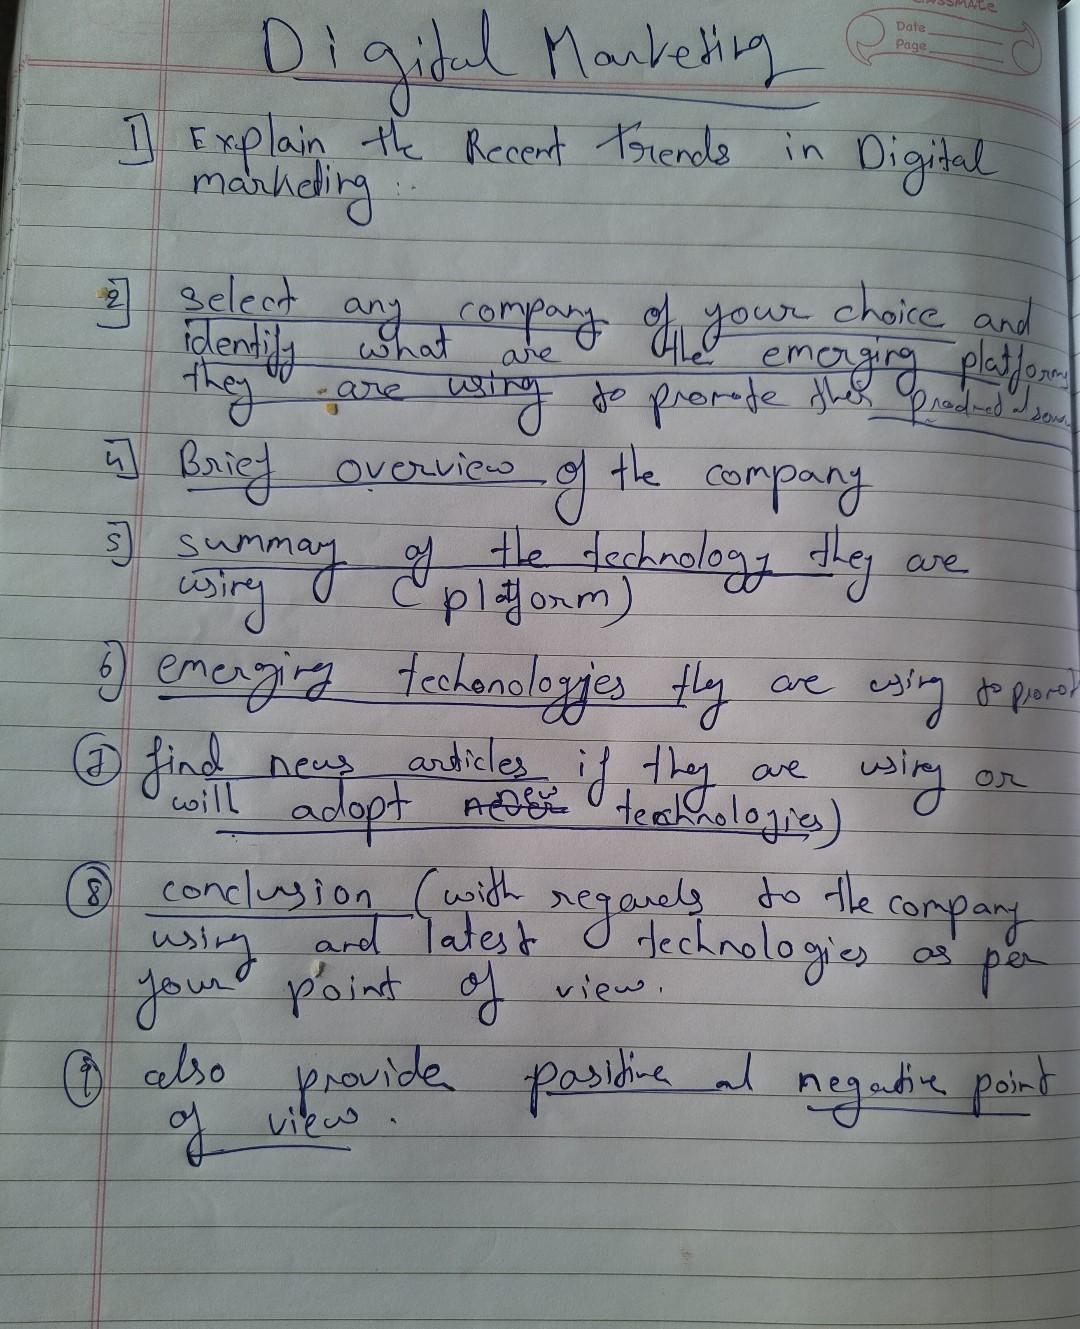 classmate
Date
Page
Digital Marketing
1] Explain the Recent Trends in Digital
marketing :.
2] select any company of your choice and
identify what are the emerging platforms
they are using to promote their Product
4] Brief overview of the company
5] summay of the technology they are
using (platform)
6) emerging techonologyies they are using to promot
7 find news articles if they are using or
will adopt new technologies)
8 conclusion (with regards to the company
using and latest technologies as per
your point of view.
9 also provide positive and negative point
of view.